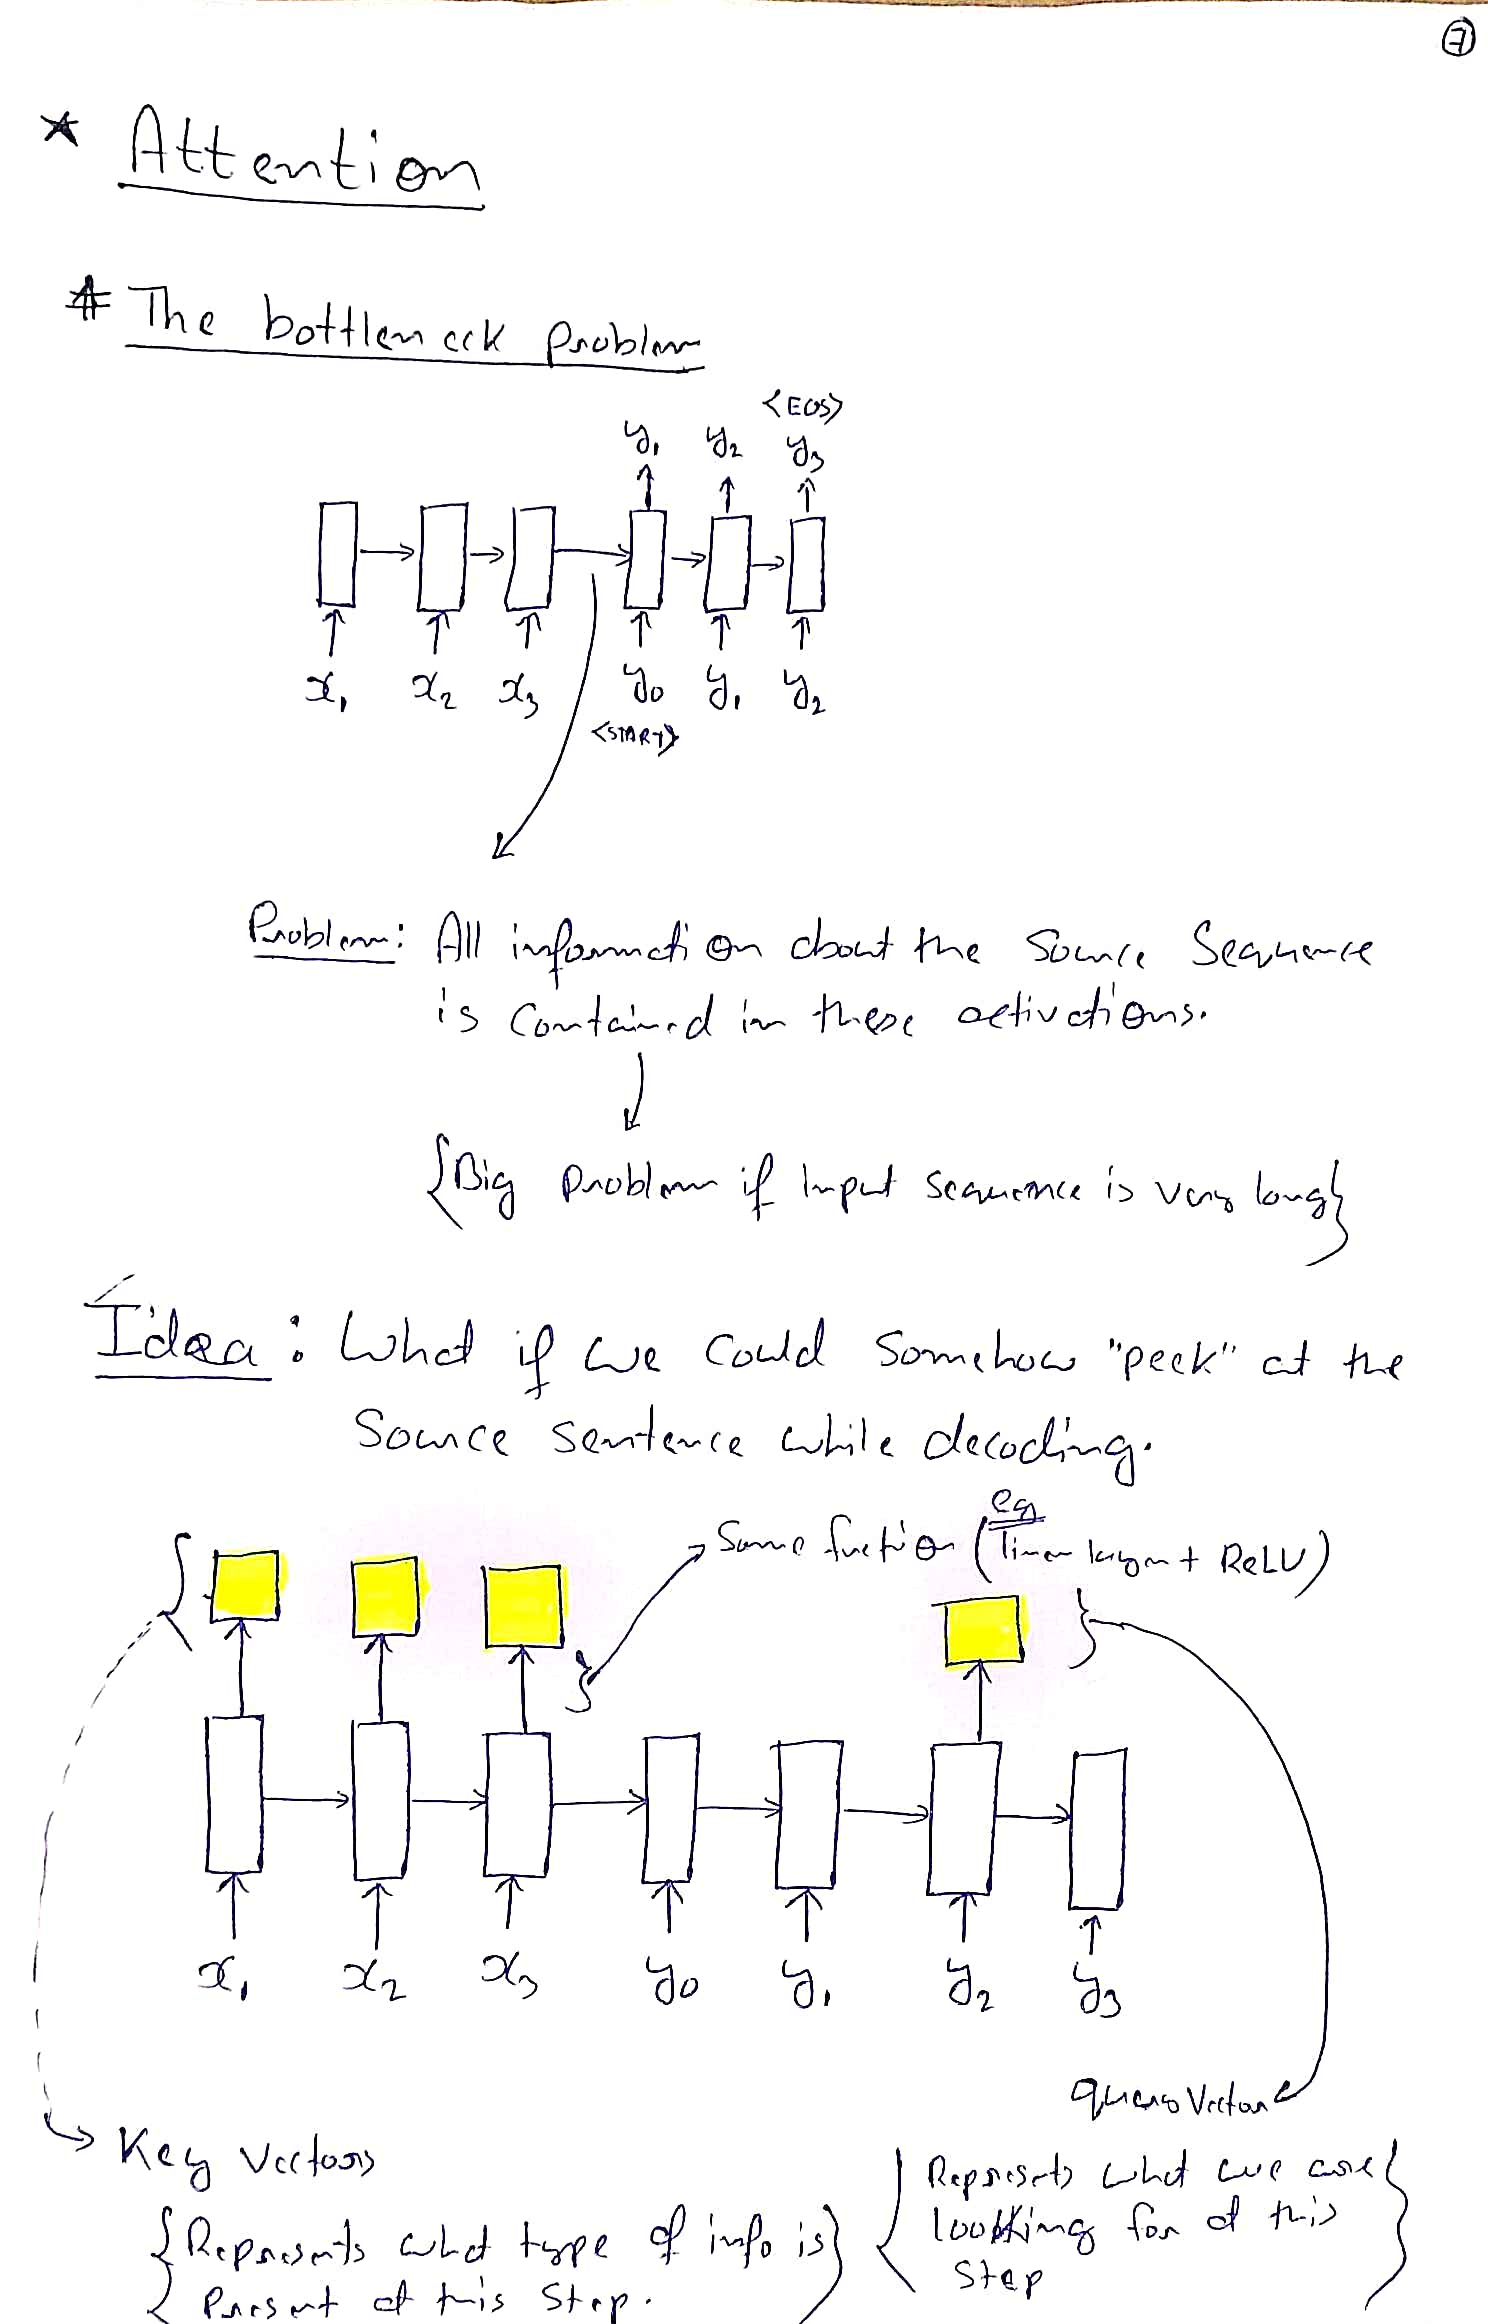 7
* Attention
# The bottleneck Problem
<EOS>
y1 y2 y3
x1 x2 x3 y0 y1 y2
<START>
Problem: All information about the Source Sequence
is Contained in these activations.
{Big Problem if Input sequence is very long}
Idea: What if we could Somehow "peek" at the
Source sentence while decoding.
Some fuction (eg Linear layer + ReLU)
x1 x2 x3 y0 y1 y2 y3
query Vector
Key Vectors
{Represents what we are
looking for at this
Step}
{Represents what type of info is
Present at this Step.}